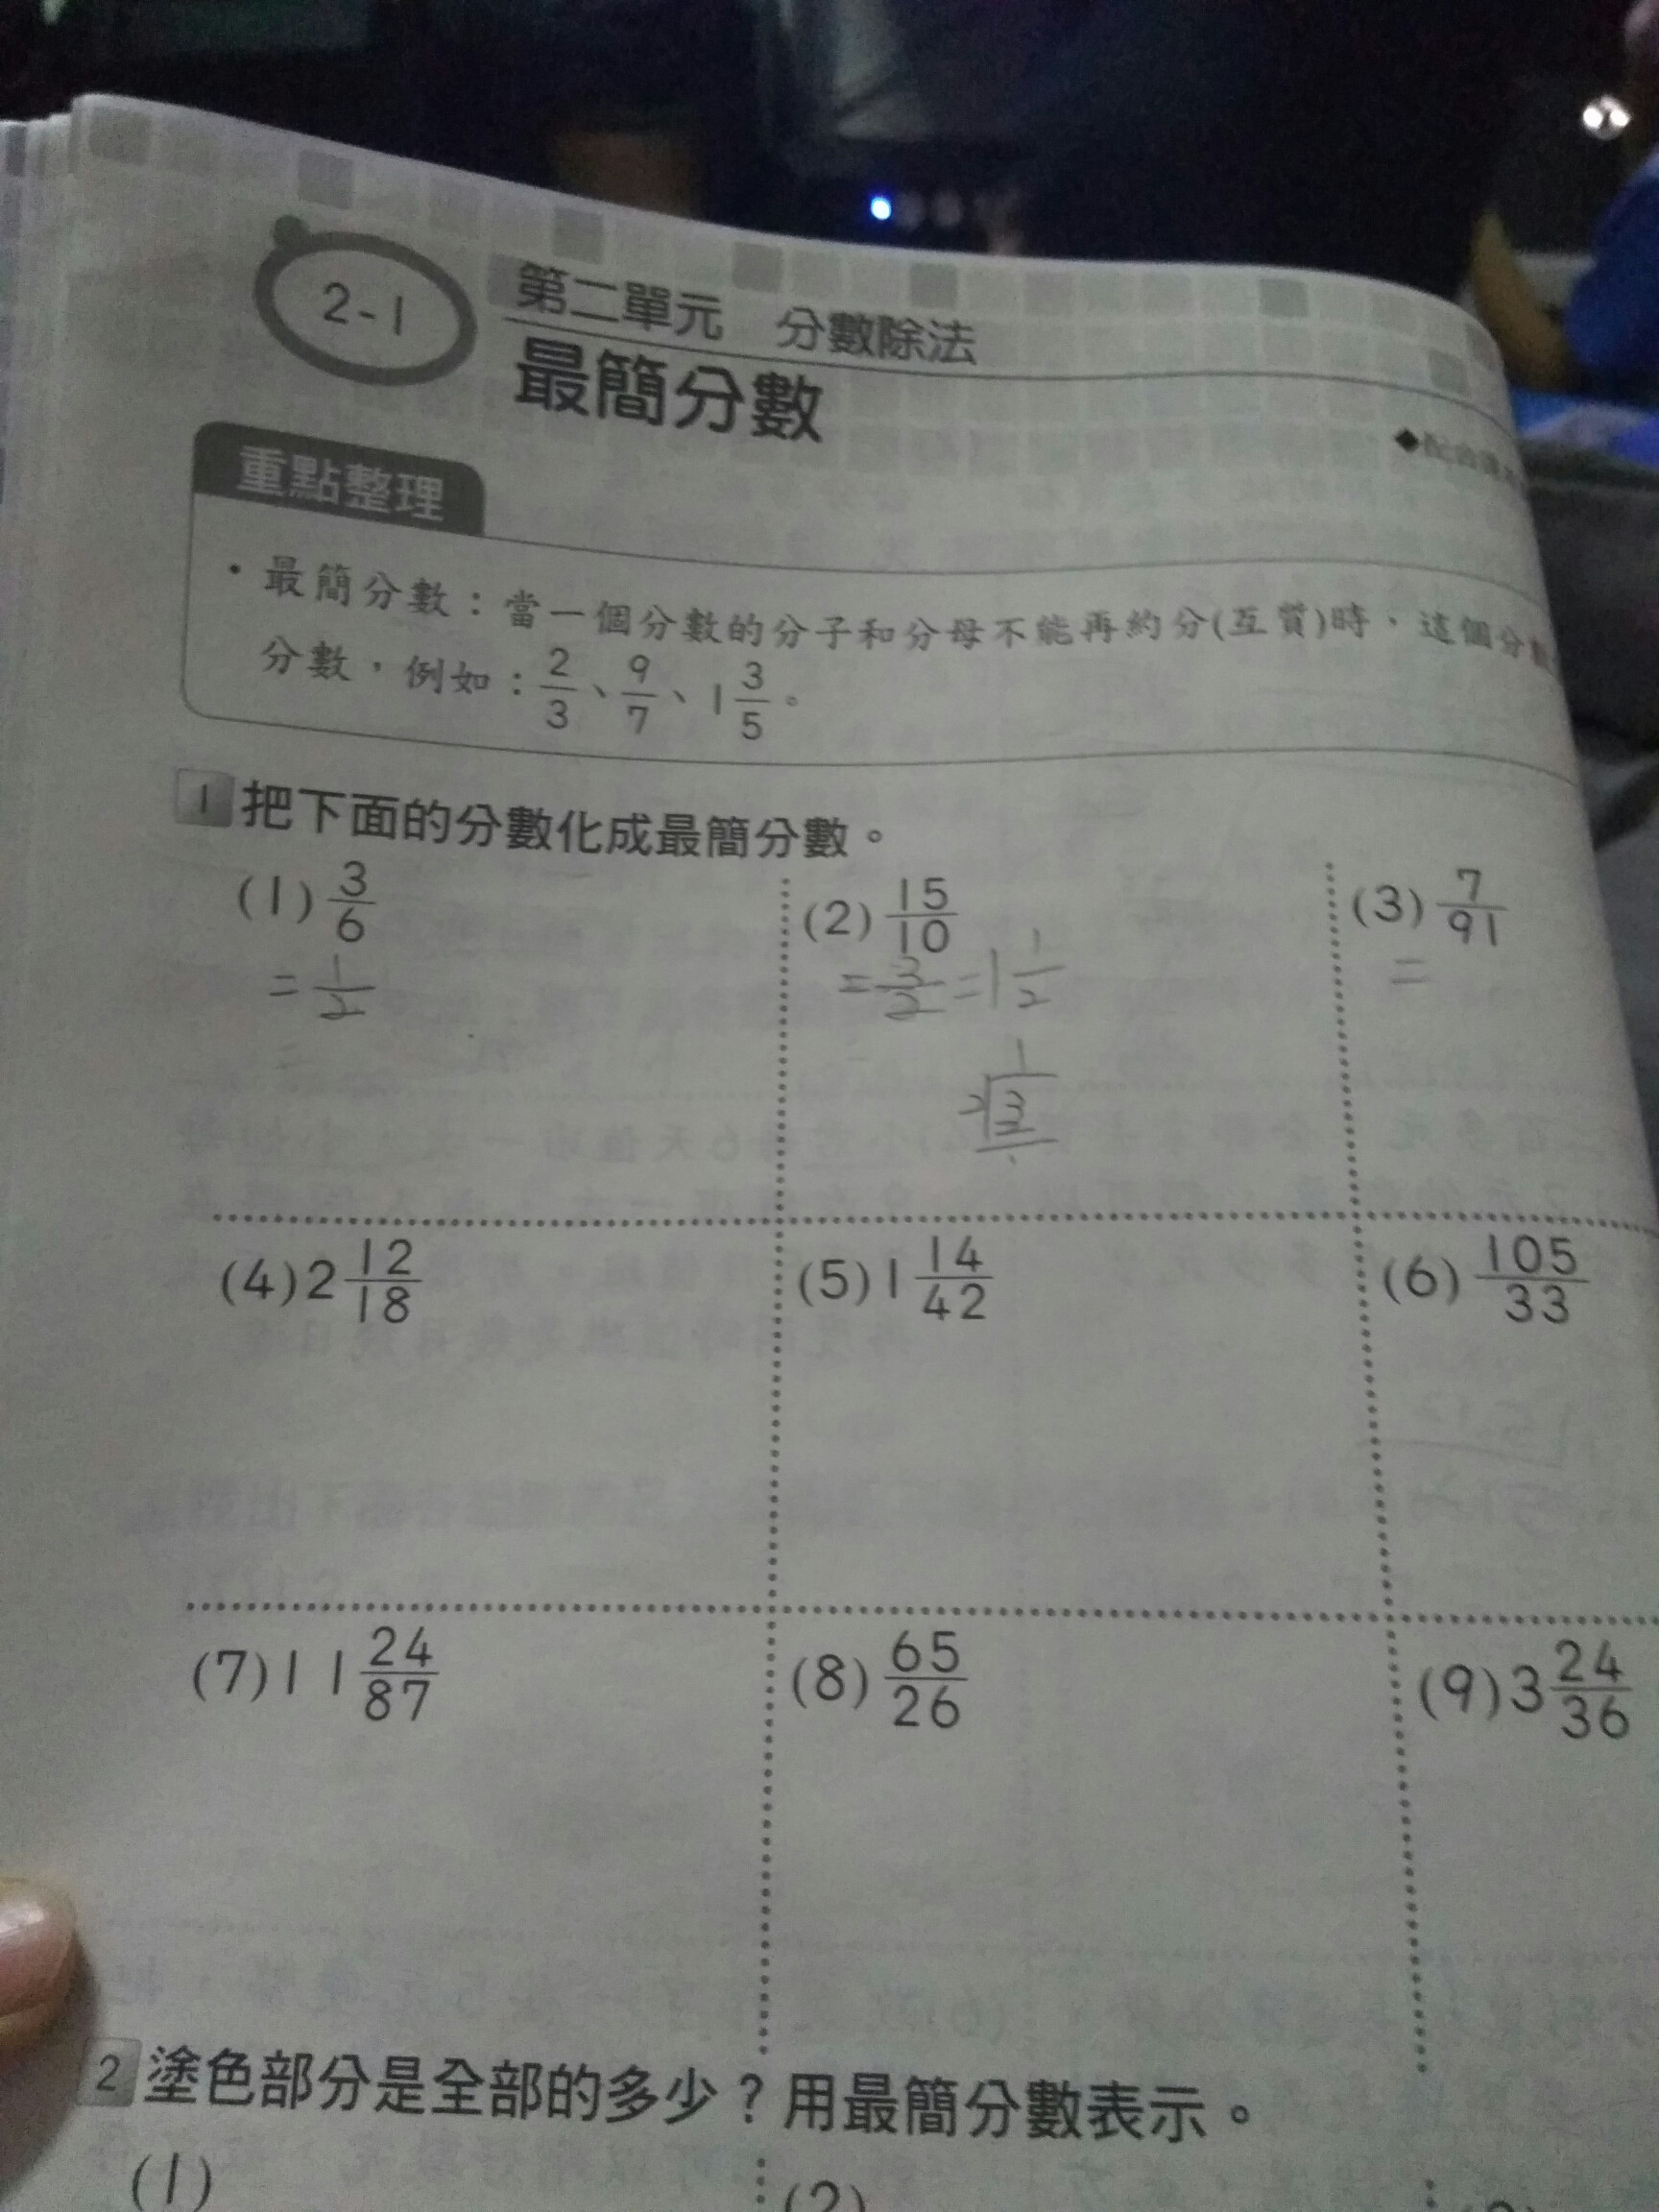 2-1
第二單元 分數除法
最簡分數
重點整理
・最簡分數：當一個分數的分子和分母不能再約分(互質)時，這個分
分數，例如：2/3、9/7、1 3/5。
1 把下面的分數化成最簡分數。
(1) 3/6 (2) 15/10 (3) 7/91
= 1/2 = 3/2 = 1 1/2 =
1
2 3
2
1
(4) 2 12/18 (5) 1 14/42 (6) 105/33
(7) 11 24/87 (8) 65/26 (9) 3 24/36
2 塗色部分是全部的多少？用最簡分數表示。
(1) (2)